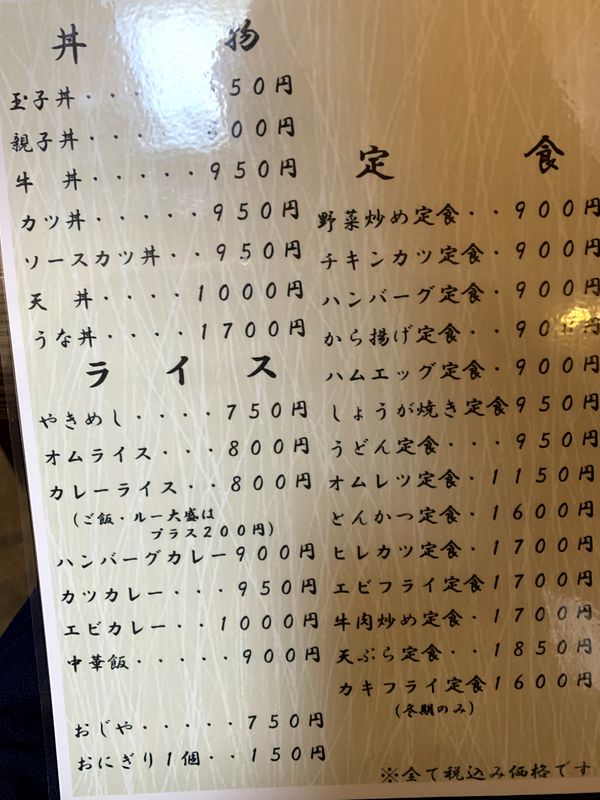 丼 物
玉子丼・・・ 50円
親子丼・・・ 00円
牛 丼・・・・・950円
カツ丼・・・・・950円
ソースカツ丼・・950円
天 丼・・・・1000円
うな丼・・・・1700円
ライス
やきめし・・・・750円
オムライス・・・800円
カレーライス・・800円
(ご飯・ルー大盛は
プラス200円)
ハンバーグカレー900円
カツカレー・・・950円
エビカレー・・1000円
中華飯・・・・・900円
おじや・・・・・750円
おにぎり1個・・150円
定 食
野菜炒め定食・・900円
チキンカツ定食・900円
ハンバーグ定食・900円
から揚げ定食・・900円
ハムエッグ定食・900円
しょうが焼き定食950円
うどん定食・・・950円
オムレツ定食・1150円
とんかつ定食・1600円
ヒレカツ定食・1700円
エビフライ定食1700円
牛肉炒め定食・1700円
天ぷら定食・・1850円
カキフライ定食1600円
(冬期のみ)
※全て税込み価格です